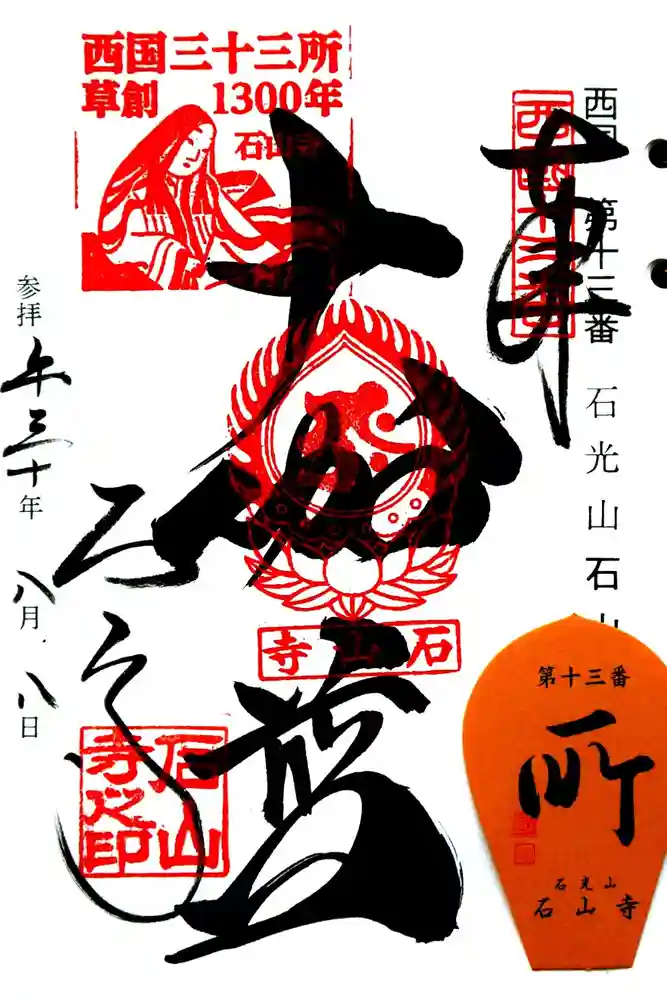 西国三十三所
草創 1300年
石山寺
奉
西国十三番
西国 第十三番 石光山 石山
大伽藍
石山寺
石山寺
石山寺之印
参拝 年三十年 八月八日
第十三番
所
石光山
石山寺